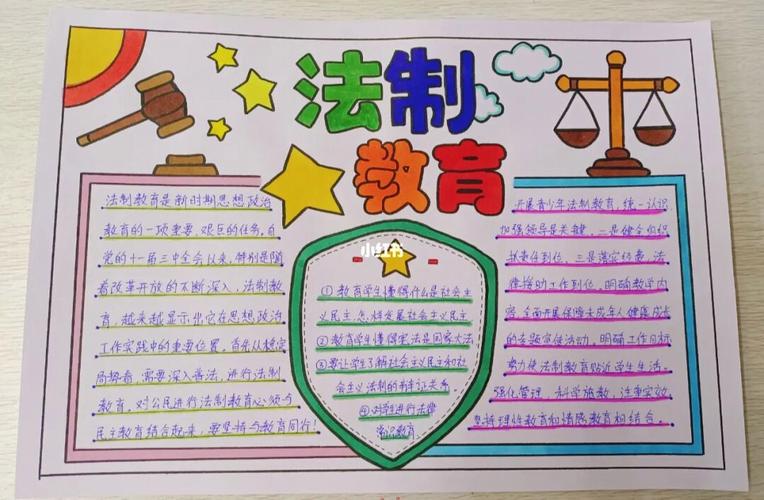 法制
教育
法制教育是新时期思想政治
教育的一项重要、艰巨的任务,自
党的十一届三中全会以来,特别是随
着改革开放的不断深入,法制教
育,越来越显示出它在思想政治
工作实践中的重要位置。首先从稳定
局势看,需要深入普法,进行法制
教育。对公民进行法制教育必须与
民主教育结合起来,要坚持与教育同行!
小红书
①教育学生懂得什么是社会主
义民主,怎样发展社会主义民主
②教育学生懂得宪法是国家大法
③要让学生了解社会主义民主和社
会主义法制的辩证关系。
④对学生进行法律
常识教育
开展青少年法制教育,统一认识
加强领导是关键,二是健全组织
抓责任到位,三是落实经费,法
律援助工作到位,明确教学内
容,全面开展保障未成年人健康成长
的专题宣传活动,明确工作目标
努力使法制教育贴近学生生活。
强化管理,科学施教,注重实效
坚持理性教育和情感教育相结合。